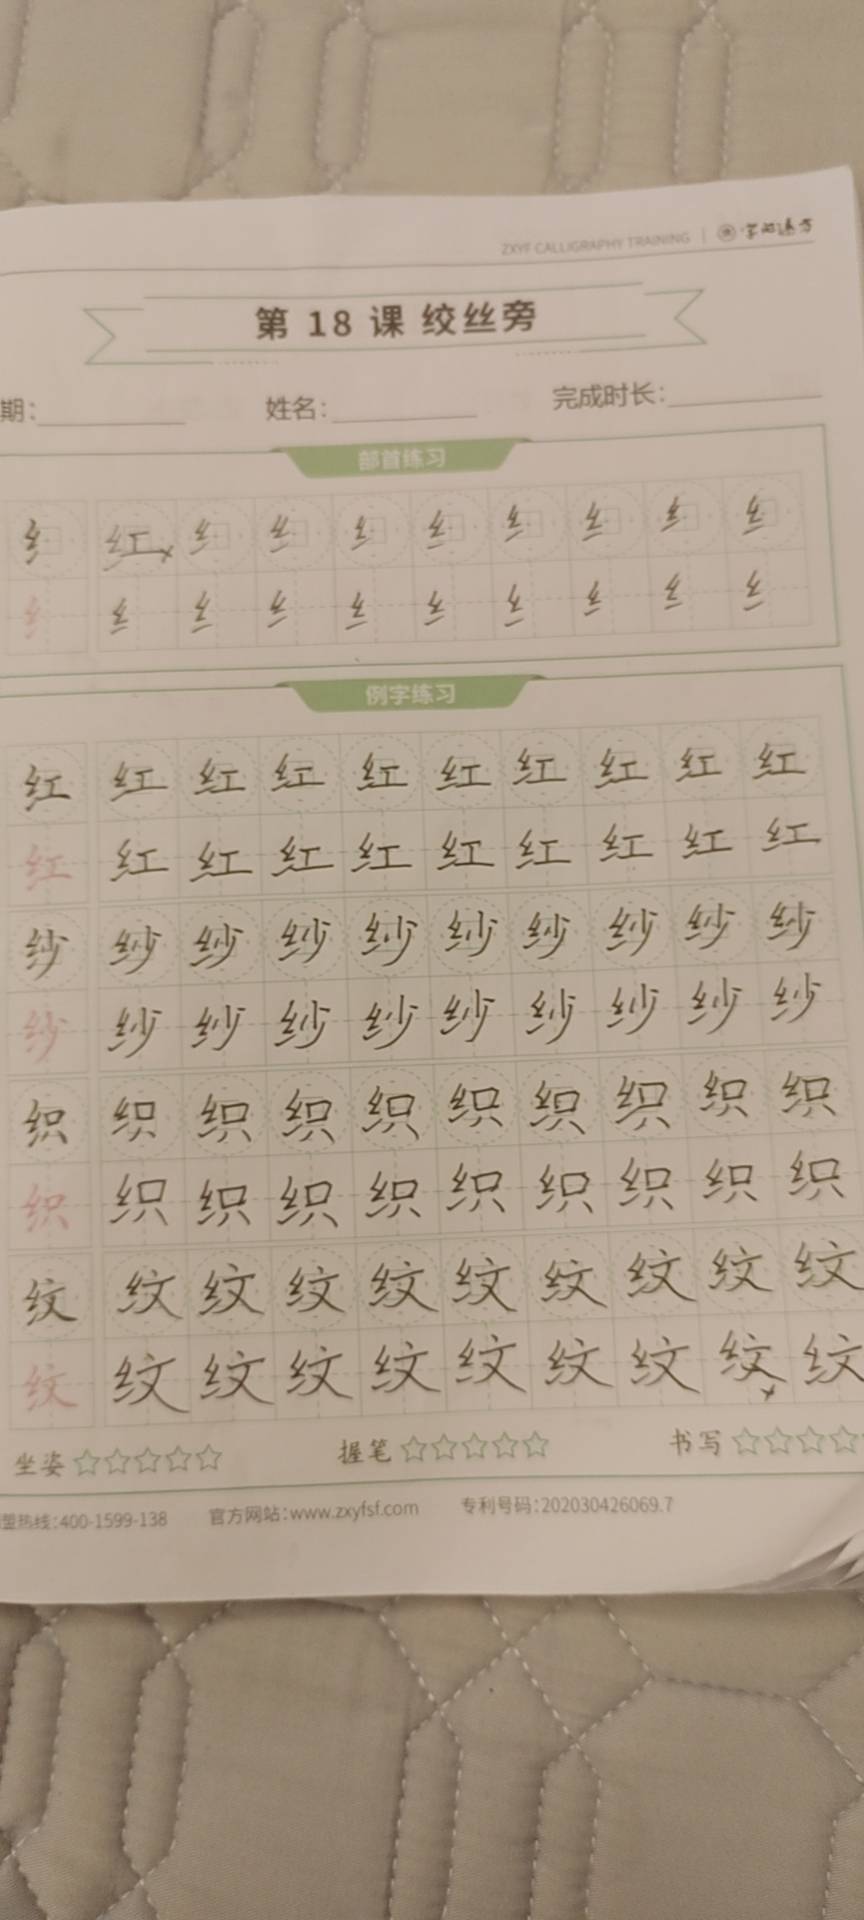 ZXYF CALLIGRAPHY TRAINING
第 18 课 绞丝旁
期： 姓名： 完成时长：
部首练习
纟 红 纟 纟 纟 纟 纟 纟 纟 纟
纟 纟 纟 纟 纟 纟 纟 纟 纟 纟
例字练习
红 红 红 红 红 红 红 红 红 红
红 红 红 红 红 红 红 红 红 红
纱 纱 纱 纱 纱 纱 纱 纱 纱 纱
纱 纱 纱 纱 纱 纱 纱 纱 纱 纱
织 织 织 织 织 织 织 织 织 织
织 织 织 织 织 织 织 织 织 织
纹 纹 纹 纹 纹 纹 纹 纹 纹 纹
纹 纹 纹 纹 纹 纹 纹 纹 纹 纹
坐姿☆☆☆☆☆ 握笔☆☆☆☆☆ 书写☆☆☆☆
盟热线：400-1599-138 官方网站：www.zxyfsf.com 专利号码：202030426069.7